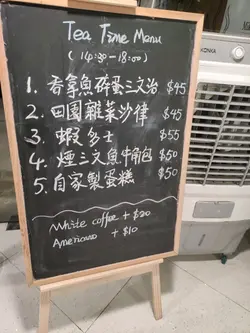 Tea Time Menu
(14:30-18:00)
1. 吞拿魚碎蛋三文治 $45
2. 田園雜菜沙律 $45
3. 蝦多士 $55
4. 煙三文魚牛角包 $50
5. 自家製蛋糕 $50
White coffee + $20
Americano + $10
KONKA